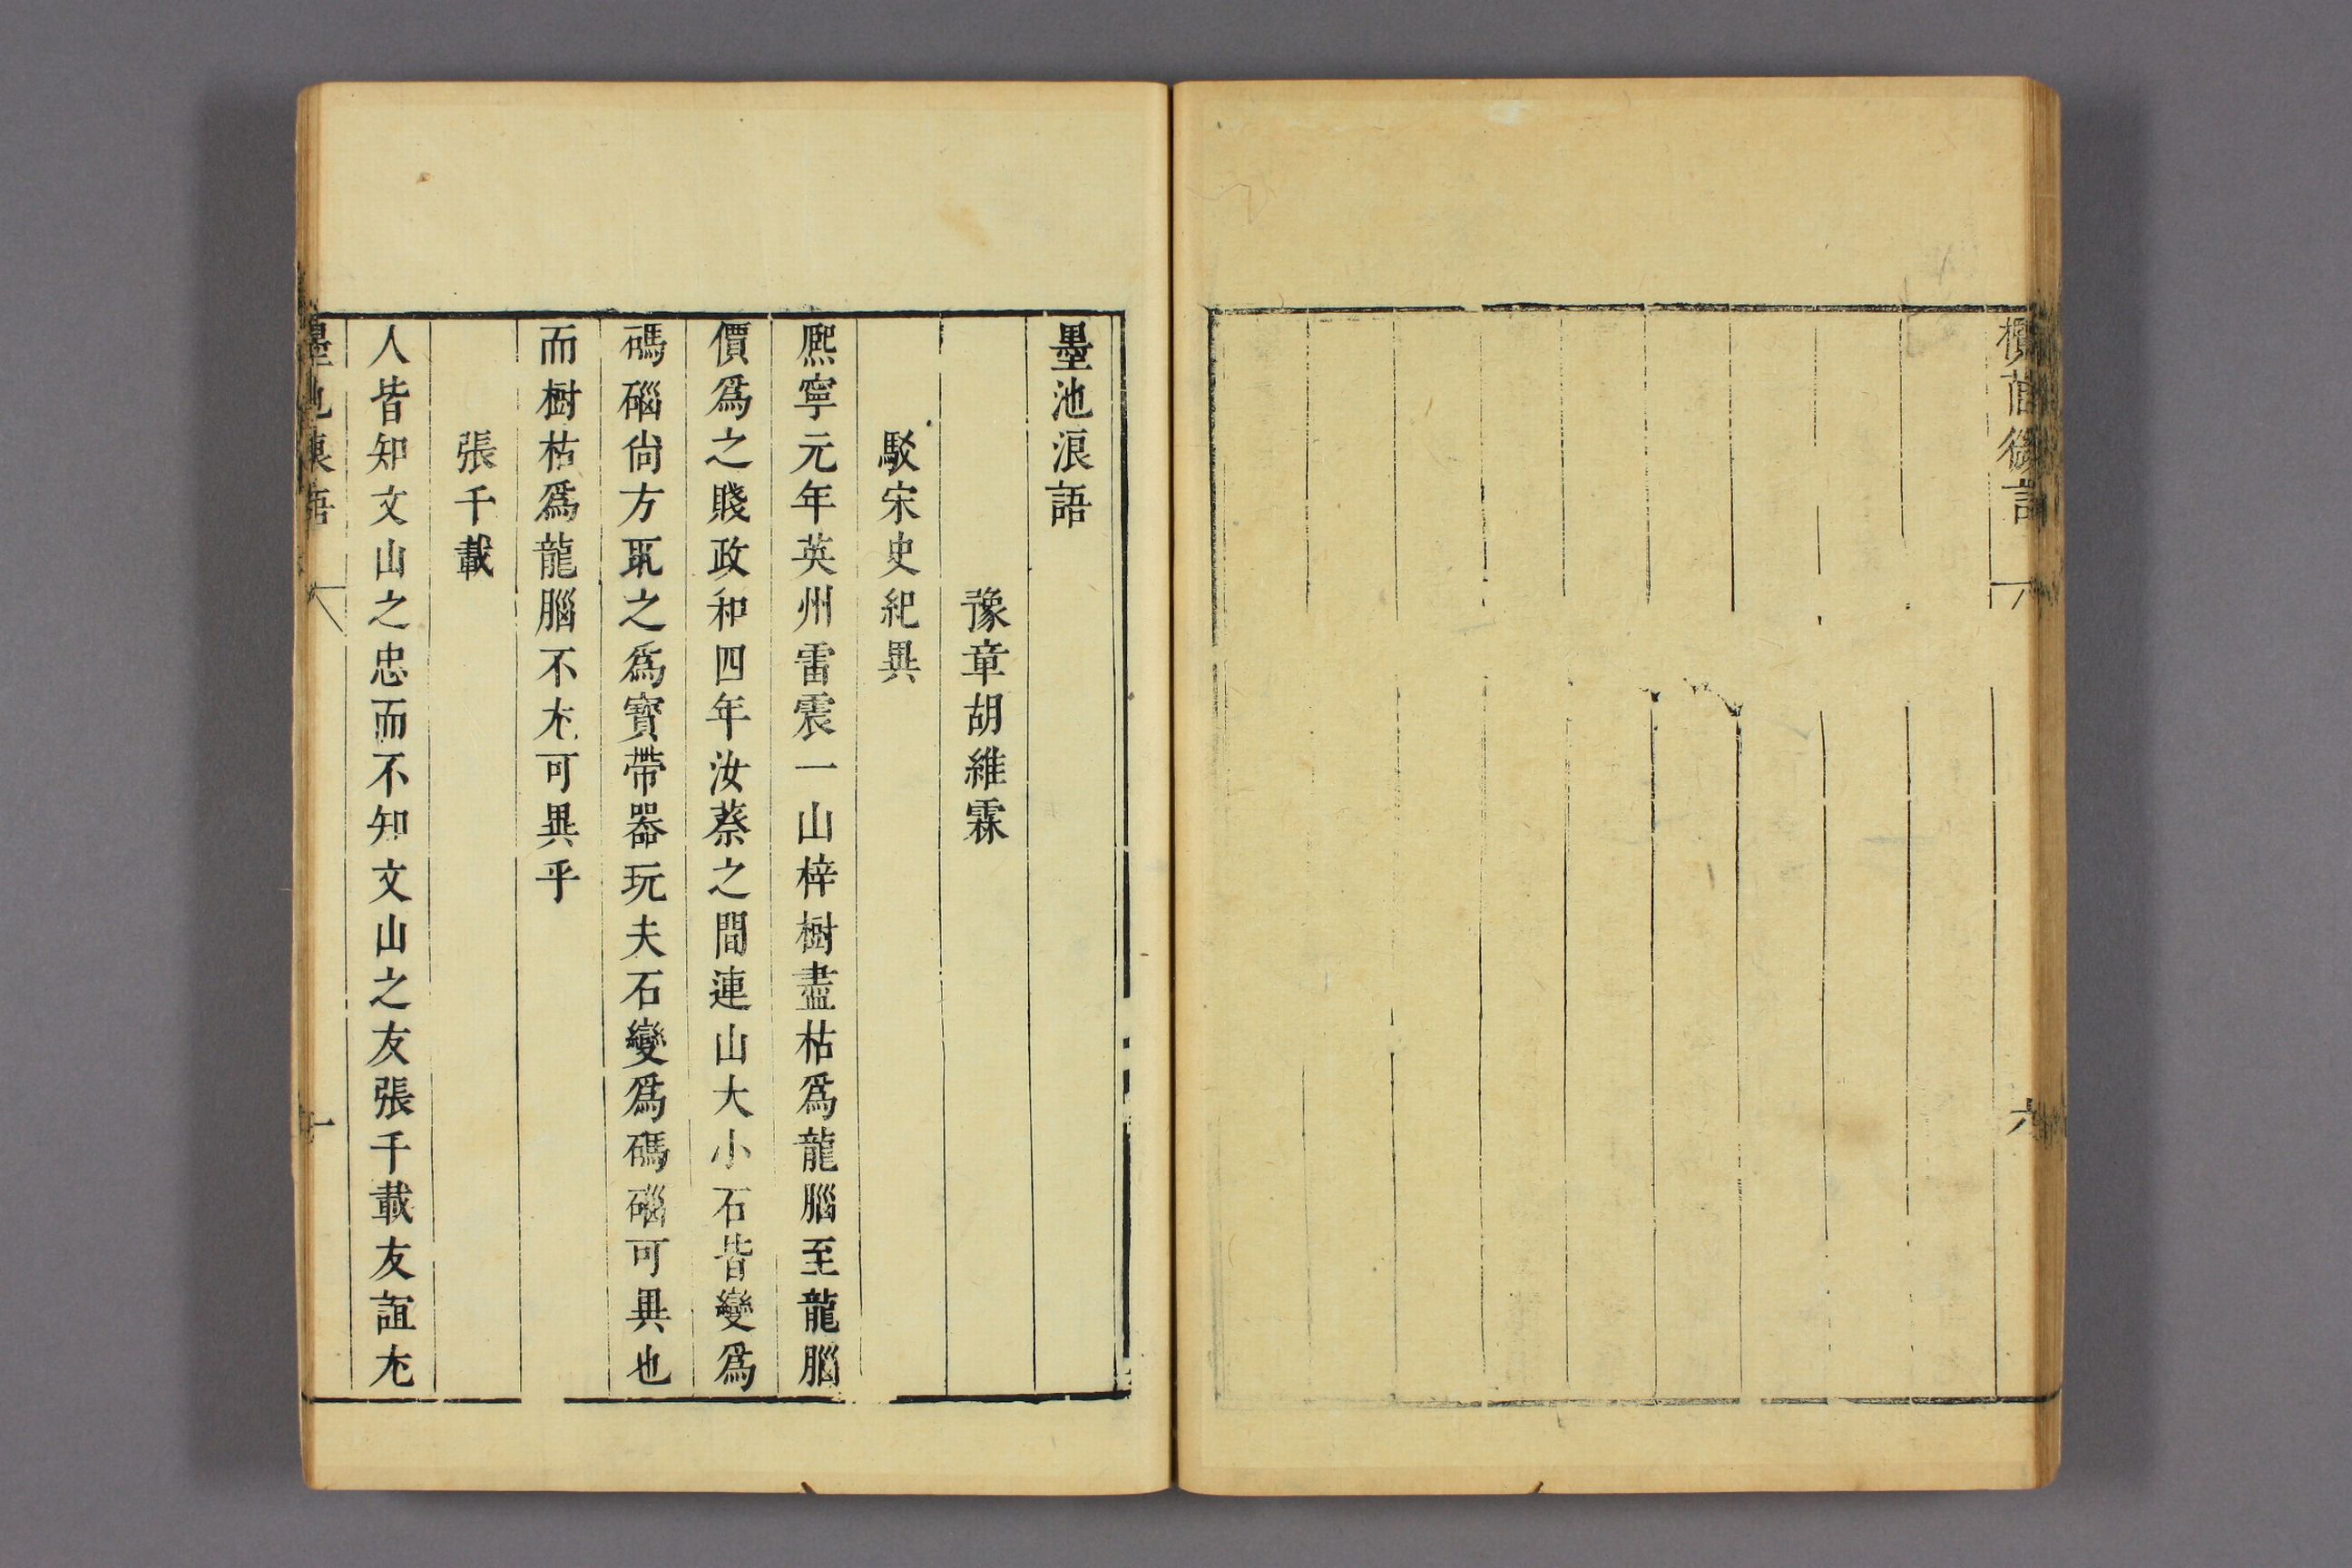 後
六
墨池浪語
豫章胡維霖
駁宋史紀異
熈寧元年英州雷震一山梓樹盡枯爲龍腦至龍腦
價爲之賤政和四年汝蔡之間連山大小石皆變爲
碼碯尙方取之爲寳帶器玩夫石變爲碼碯可異也
而樹枯爲龍腦不尤可異乎
張千載
人皆知文山之忠而不知文山之友張千載友誼尤
墨池浪語
一